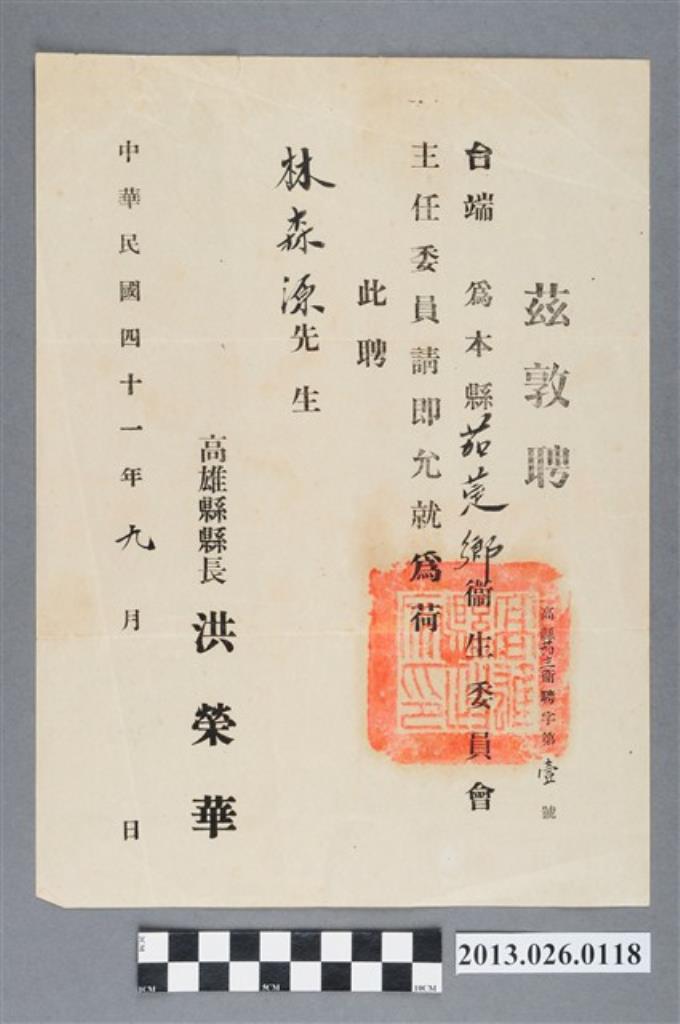 茲敦聘
高縣茄三衞聘字第壹號
台端 爲本縣茄萣鄉衞生委員會
主任委員請即允就爲荷
此聘
林森源先生
高雄縣縣長 洪榮華
中華民國四十一年九月 日
5CM
10CM
2013.026.0118